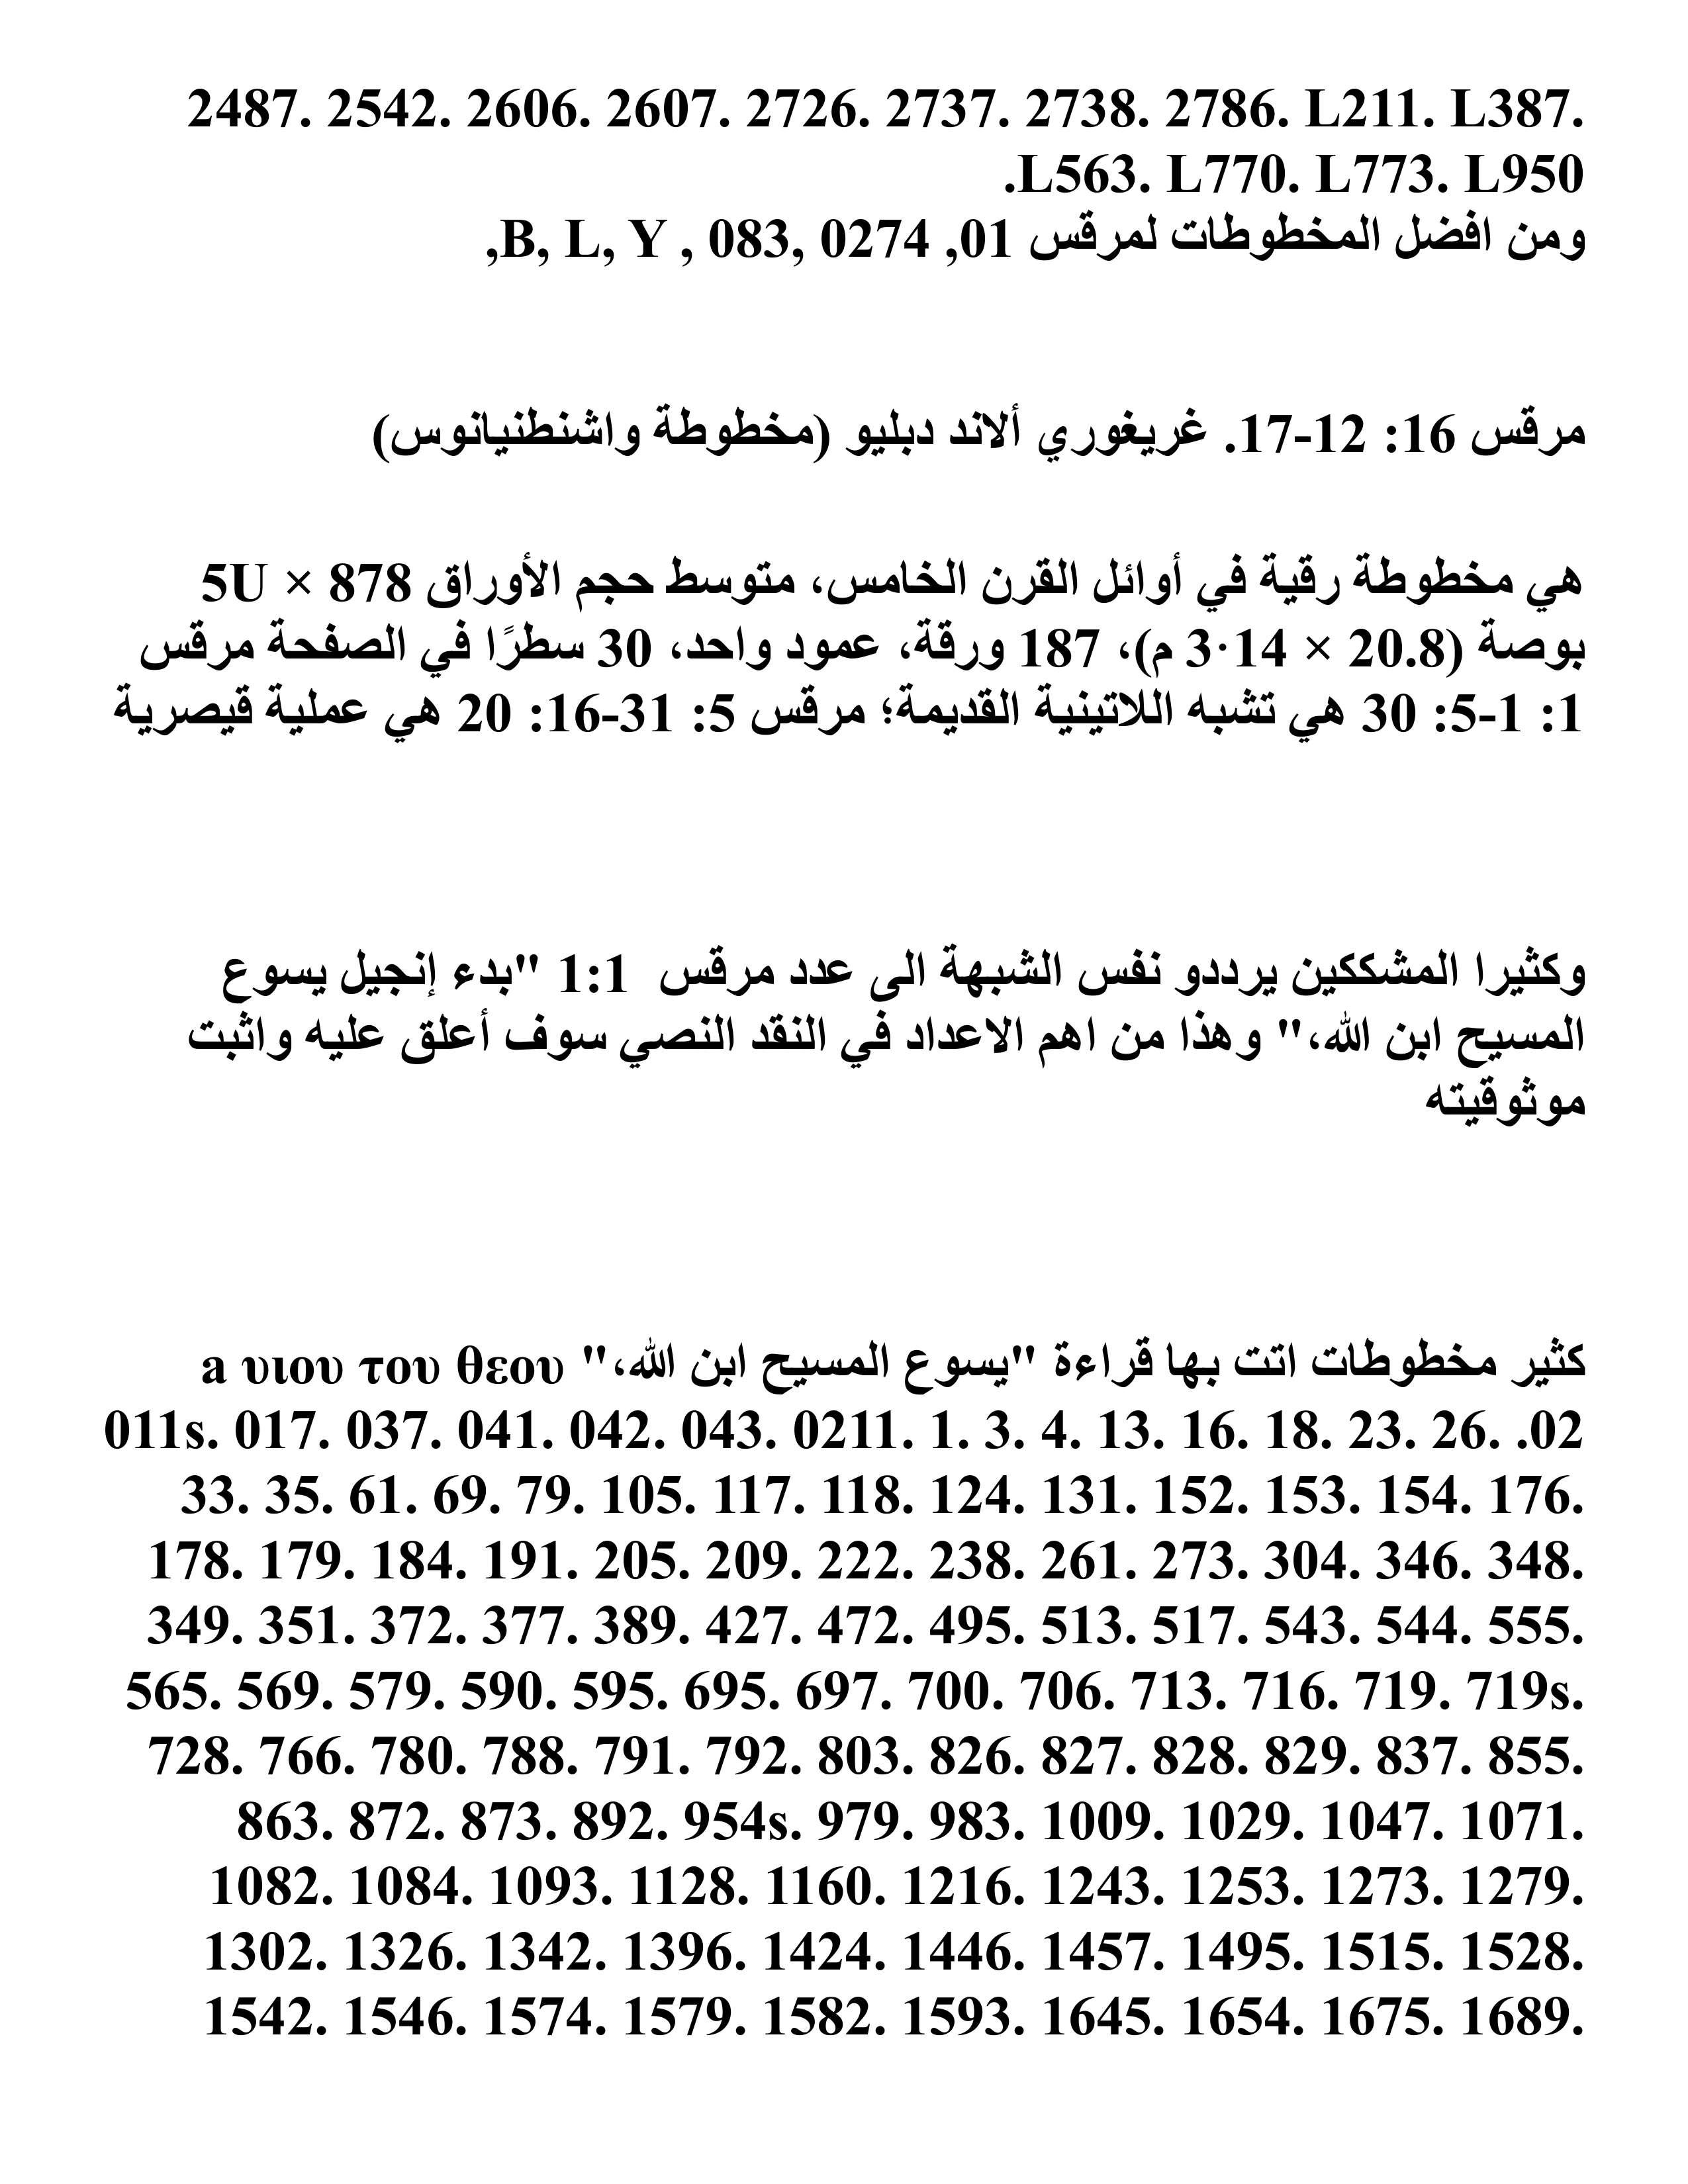 2487. 2542. 2606. 2607. 2726. 2737. 2738. 2786. L211. L387.
L563. L770. L773. L950.
ومن افضل المخطوطات لمرقس 01, 0274 ,083 , B, L, Y,
مرقس 16: 12-17. غريغوري ألاند دبليو (مخطوطة واشنطنيانوس)
هي مخطوطة رقية في أوائل القرن الخامس، متوسط حجم الأوراق 878 × 5U
بوصة (20.8 × 14·3 م)، 187 ورقة، عمود واحد، 30 سطرًا في الصفحة مرقس
1: 1-5: 30 هي تشبه اللاتينية القديمة؛ مرقس 5: 31-16: 20 هي عملية قيصرية
وكثيرا المشككين يرددو نفس الشبهة الى عدد مرقس 1:1 "بدء إنجيل يسوع
المسيح ابن الله،" وهذا من اهم الاعداد في النقد النصي سوف أعلق عليه واثبت
موثوقيته
كثير مخطوطات اتت بها قراءة "يسوع المسيح ابن الله،" a υιου του θεου
02. 011s. 017. 037. 041. 042. 043. 0211. 1. 3. 4. 13. 16. 18. 23. 26.
33. 35. 61. 69. 79. 105. 117. 118. 124. 131. 152. 153. 154. 176.
178. 179. 184. 191. 205. 209. 222. 238. 261. 273. 304. 346. 348.
349. 351. 372. 377. 389. 427. 472. 495. 513. 517. 543. 544. 555.
565. 569. 579. 590. 595. 695. 697. 700. 706. 713. 716. 719. 719s.
728. 766. 780. 788. 791. 792. 803. 826. 827. 828. 829. 837. 855.
863. 872. 873. 892. 954s. 979. 983. 1009. 1029. 1047. 1071.
1082. 1084. 1093. 1128. 1160. 1216. 1243. 1253. 1273. 1279.
1302. 1326. 1342. 1396. 1424. 1446. 1457. 1495. 1515. 1528.
1542. 1546. 1574. 1579. 1582. 1593. 1645. 1654. 1675. 1689.